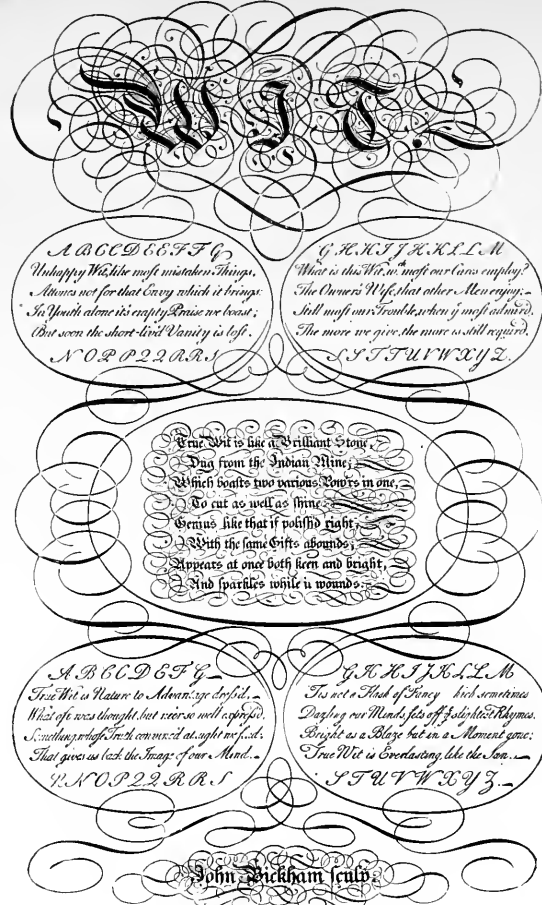 WIT.
A B C C D E E F F G
Unhappy Wit, like most mistaken Things,
Attones not for that Envy which it brings:
In Youth alone it's empty Praise we boast;
But soon the short-liv'd Vanity is lost.
N O P P 2 2 R R S
G H H I J H K L L M
What is this Wit, wch. most our Cares employ?
The Owner's Wife, that other Men enjoy;
Still most our Trouble, when ye most admir'd,
The more we give, the more is still requir'd.
S S T T U V W X Y Z.
True Wit is like a Brilliant Stone,
Dug from the Indian Mine;
Which boasts two various Pow'rs in one,
To cut as well as shine.
Genius like that if polish'd right,
With the same Gifts abounds;
Appears at once both keen and bright,
And sparkles while it wounds.
A B C C D E F G
True Wit is Nature to Advantage dress'd,
What oft was thought, but ne'er so well express'd,
Something, whose Truth convinc'd at sight we find:
That gives us back the Image of our Mind.
N O P 2 2 R R S
G H H I J K L L M
Tis not a Flash of Fancy sometimes
Dazling our Minds, sets off ye slightest Rhymes.
Bright as a Blaze but in a Moment gone:
True Wit is Everlasting, like the Sun.
S T U V W X Y Z.
John Bickham sculp.